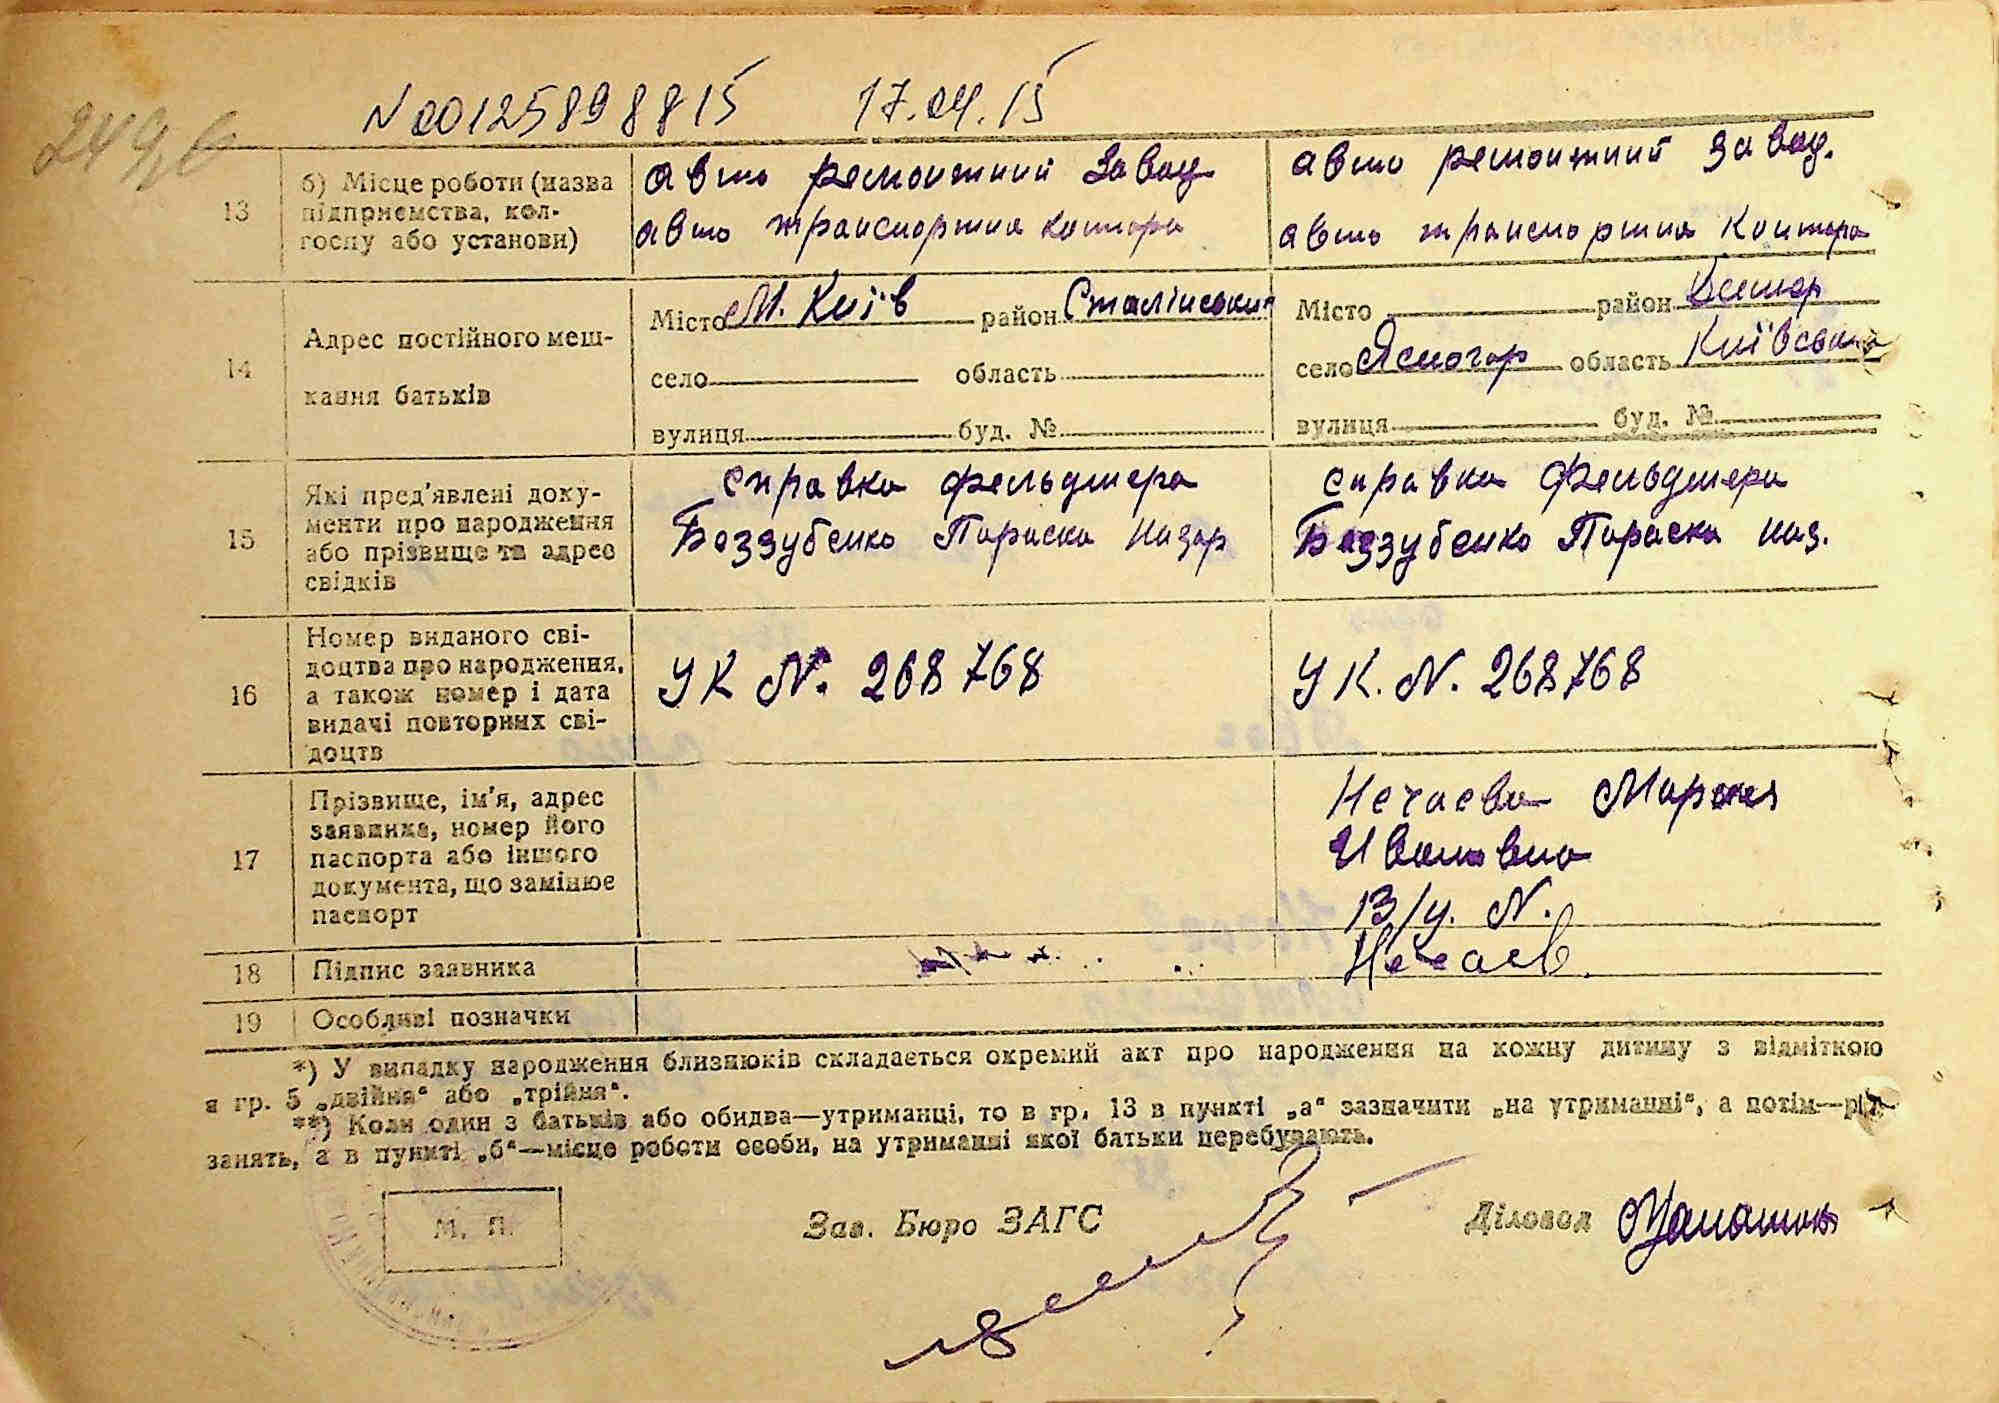 249
N 00125898815 17.04.15
13
б) Місце роботи (назва
підприємства, кол-
госпу або установи)
авто ремонтний завод
авто транспортна контора
авто ремонтний завод.
авто транспортна контора
14
Адрес постійного меш-
кання батьків
Місто м. Київ район Сталінський
село область
вулиця буд. №
Місто район
село Ясногор область Київська
вулиця буд. №
15
Які пред'явлені доку-
менти про народження
або прізвище та адрес
свідків
справка фельдшера
Беззубенко Параска Назар
справка фельдшера
Беззубенко Параска наз.
16
Номер виданого сві-
доцтва про народження,
а також номер і дата
видачі повторних сві-
доцтв
УК № 268768
УК. №. 268768
17
Прізвище, ім'я, адрес
заявника, номер його
паспорта або іншого
документа, що замінює
паспорт
Нечаева Мария
Ивановна
13/у. №.
18
Підпис заявника
Нечаев
19
Особливі позначки
*) У випадку народження близнюків складається окремий акт про народження на кожну дитину з відміткою
в гр. 5 „двійня“ або „трійня“.
**) Коли один з батьків або обидва—утриманці, то в гр. 13 в пункті „а“ зазначити „на утриманні“, а потім—рід
занять, а в пункті „б“—місце роботи особи, на утриманні якої батьки перебувають.
М. П.
Зав. Бюро ЗАГС
Діловод